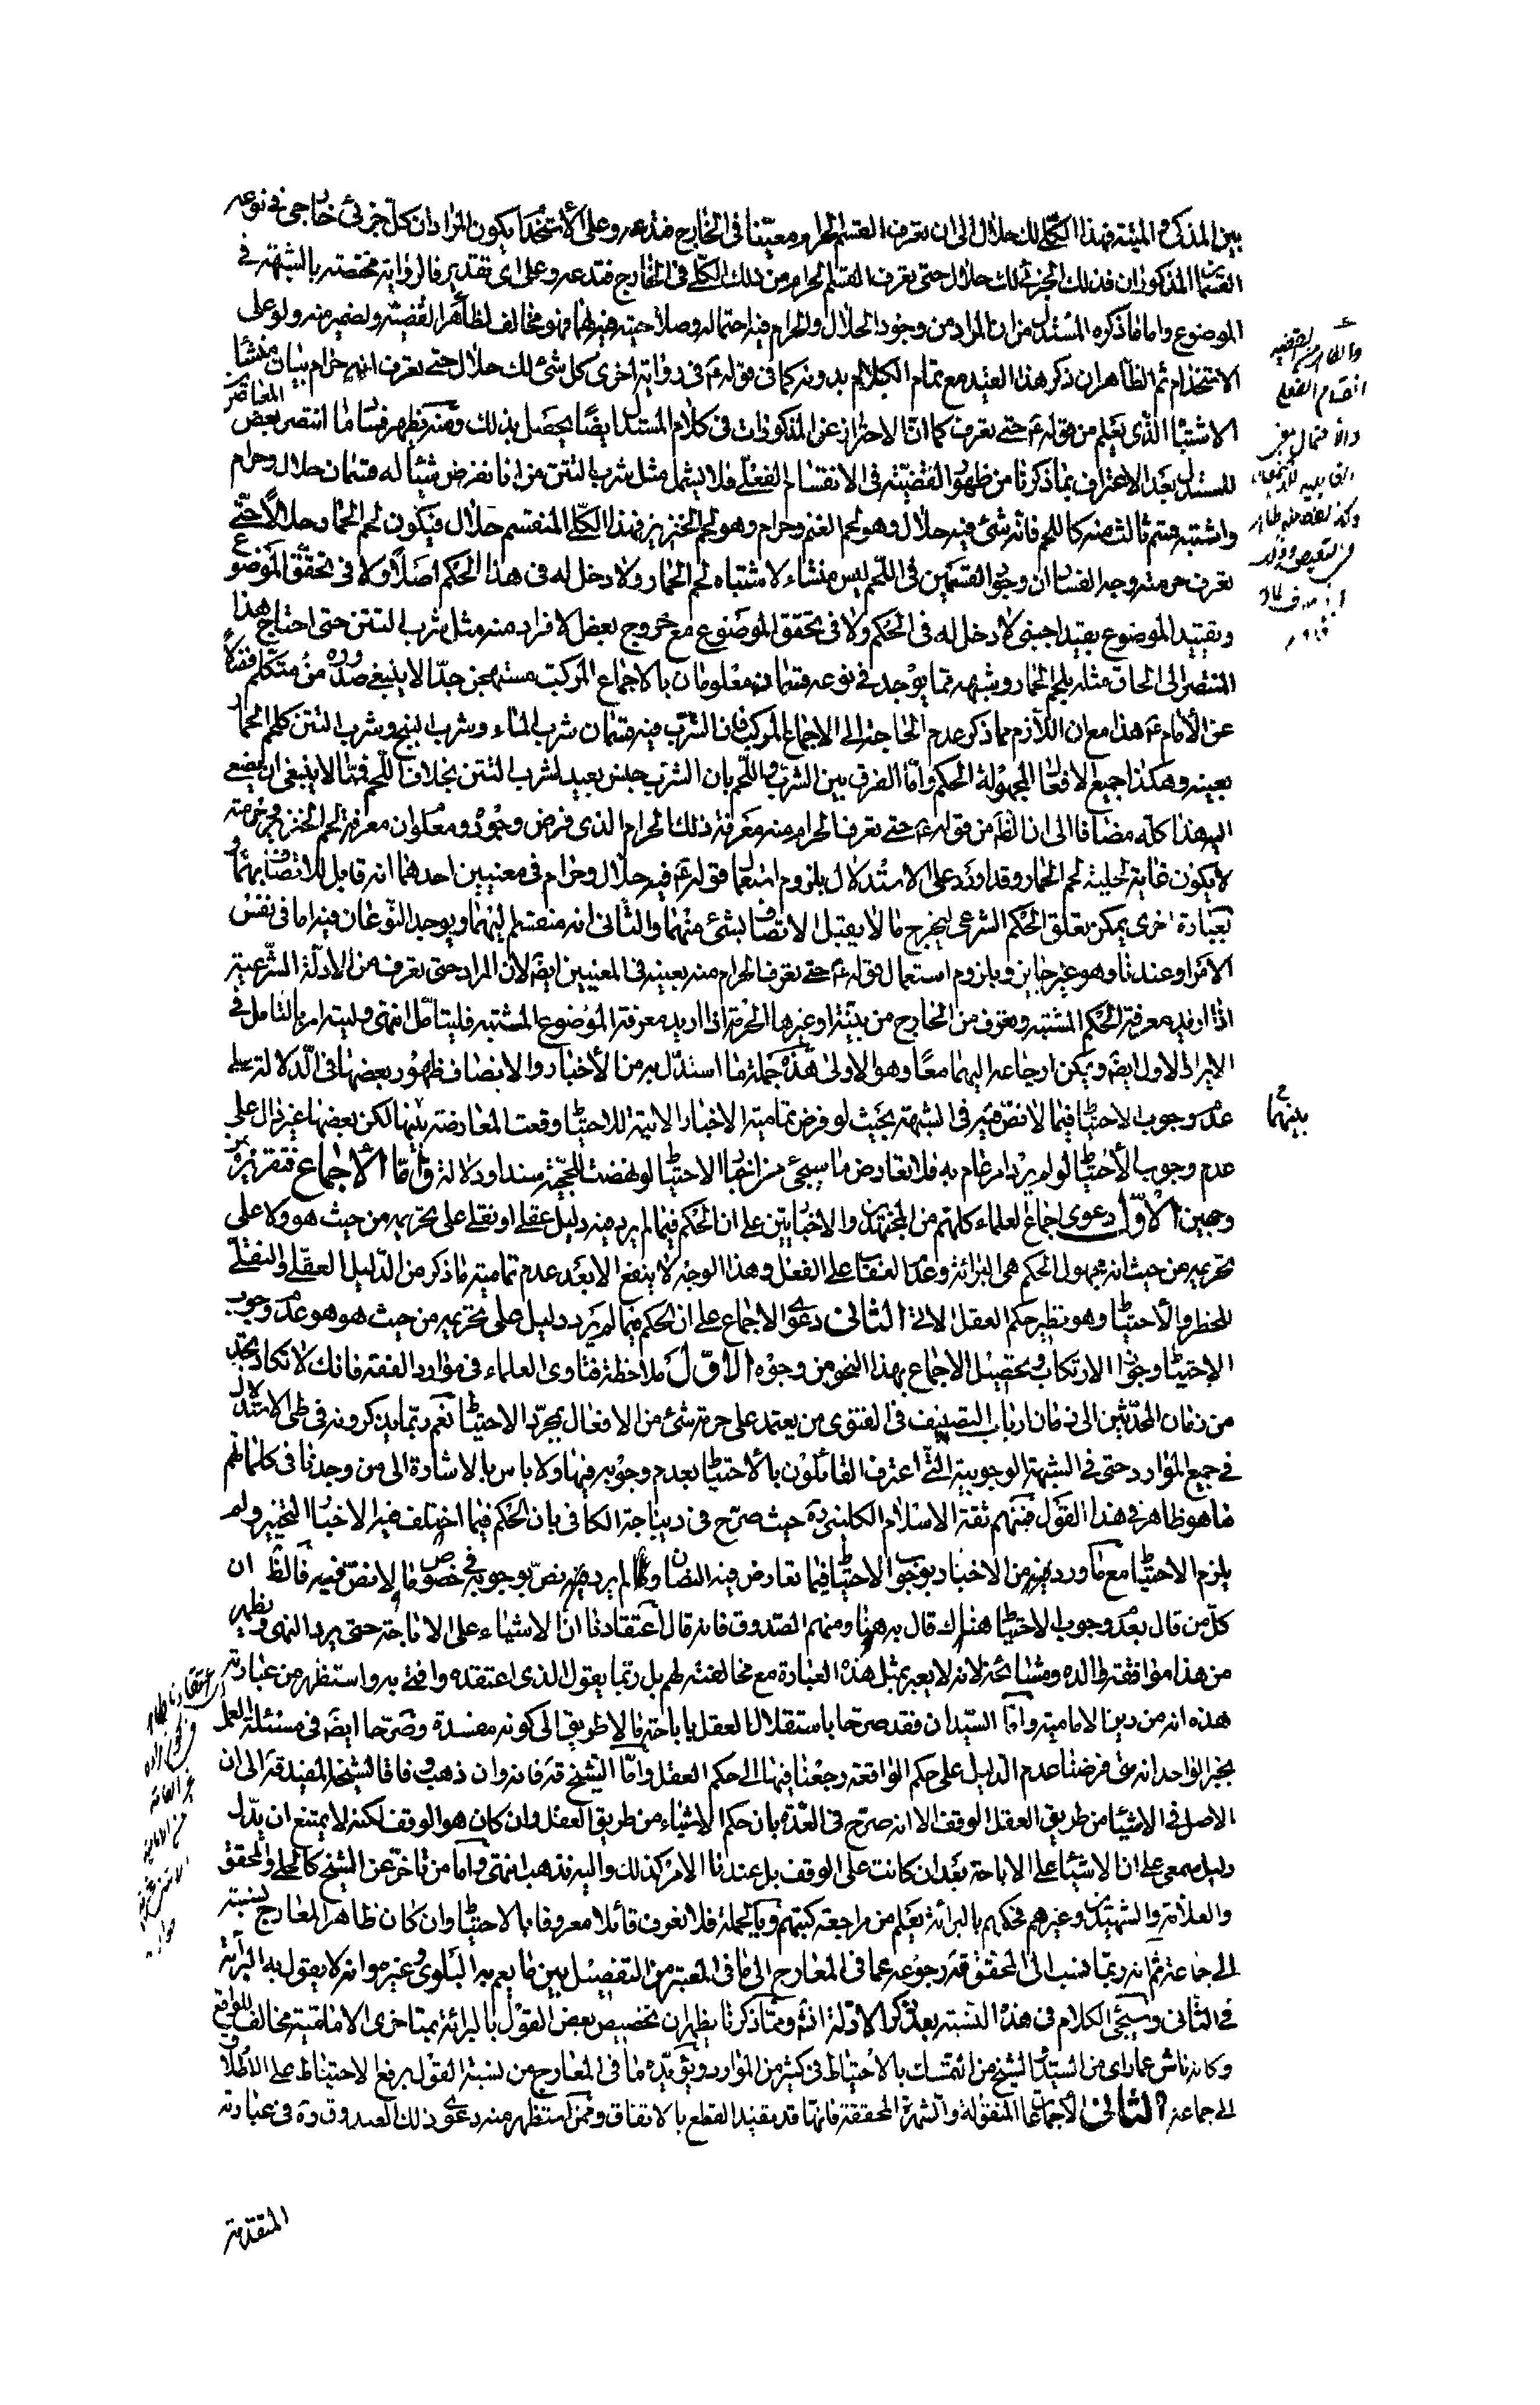 بين المذكى والميتة فهذا الكلى لك حلال الى ان تعرف القسم الحرام معينا فى الخارج فتدعه وعلى الاستخدام يكون المراد ان كل جزئى خارجى فى نوعه
القسمان المذكوران فذلك الجزئى لك حلال حتى تعرف القسم الحرام من ذلك الكلى فى الخارج فتدعه وعلى اى تقدير فالرواية مختصة بالشبهة فى
الموضوع واما ما ذكره المستدل من ان المراد من وجود الحلال والحرام فيه احتماله وصلاحيته لهما فهو مخالف لظاهر القضية ولضمير منه ولو على
الاستخدام ثم الظاهر ان ذكر هذا القيد مع تمام الكلام بدونه كما فى قوله ع فى رواية اخرى كل شئ لك حلال حتى تعرف انه حرام بيان منشأ
الاشتباه الذى يعلم من قوله ع حتى تعرف كما ان الاحتراز عن المذكورات فى كلام المستدل ايضا يحصل بذلك ومنه يظهر فساد ما انتصر بعض المعاصر
للمستدل بعد الاعتراف بما ذكرنا من ظهور القضية فى الانقسام الفعلى فلا يشمل مثل شرب التتن من انا نفرض شيئا له قسمان حلال وحرام
واشتبه قسم ثالث منه كاللحم فانه شئ فيه حلال وهو لحم الغنم وحرام وهو لحم الخنزير فهذا الكلى المنقسم حلال فيكون لحم الحمار حلالا حتى
تعرف حرمته وجه الفساد ان وجود القسمين فى اللحم ليس منشاء لاشتباه لحم الحمار ولا دخل له فى هذا الحكم اصلا ولا فى تحقق الموضوع
وتقييد الموضوع بقيد اجنبى لا دخل له فى الحكم ولا فى تحقق الموضوع مع خروج بعض الافراد منه مثل شرب التتن حتى احتاج هذا
المنتصر الى الحاق مثله بلحم الحمار وشبهه مما يوجد فى نوعه قسمان معلومان بالاجماع المركب مستهجن جدا لا ينبغى صدوره من متكلم فضلا
عن الامام ع هذا مع ان اللازم مما ذكر عدم الحاجة الى الاجماع المركب فان الشرب فيه قسمان شرب الماء وشرب البنج وشرب التتن كلحم الحمار
بعينه وهكذا جميع الافعال المجهولة الحكم واما الفرق بين الشرب واللحم بان الشرب جنس بعيد لشرب التتن بخلاف اللحم فمما لا ينبغى ان يصغى
اليه هذا كله مضافا الى ان الظ من قوله ع حتى تعرف الحرام منه معرفة ذلك الحرام الذى فرض وجوده ومعلوم ان معرفة لحم الخنزير وحرمته
لا يكون غاية لحلية لحم الحمار وقد اورد على الاستدلال بلزوم استعمال قوله ع فيه حلال وحرام فى معنيين احدهما انه قابل للاتصاف بهما و
بعبارة اخرى يمكن تعلق الحكم الشرعى ليخرج ما لا يقبل الاتصاف بشئ منهما والثانى انه منقسم اليهما ويوجد النوعان فيه اما فى نفس
الامر او عندنا وهو غير جايز وبلزوم استعمال قوله ع حتى تعرف الحرام منه بعينه فى المعنيين ايض لان المراد حتى تعرف من الادلة الشرعية
اذا اريد معرفة الحكم المشتبه وتعرف من الخارج من بينة او غيرها الحرمة اذا اريد معرفة الموضوع المشتبه فليتامل انتهى وليته امر بالتامل فى
الايراد الاول ايض ويمكن ارجاعه اليهما معا وهو الاولى هذه جملة ما استدل به من الاخبار والانصاف ظهور بعضها فى الدلالة على
عدم وجوب الاحتياط فيما لا نص فيه فى الشبهة بحيث لو فرض تمامية الاخبار الاتية للاحتياط وقعت المعارضة بينها لكن بعضها غير دال على
عدم وجوب الاحتياط لو لم يرد امر عام به فلا تعارض ما سيجئ من اخبار الاحتياط لو نهضت للحجة سندا ودلالة واما الاجماع فتقريره من
وجهين الاول دعوى اجماع العلماء كلهم من المجتهدين والاخباريين على ان الحكم فيما لم يرد فيه دليل عقلى او نقلى على تحريمه من حيث هو ولا على
تحريمه من حيث انه مجهول الحكم هى البرائة وعدم العقاب على الفعل وهذا الوجه لا ينفع الا بعد عدم تمامية ما ذكر من الدليل العقلى والنقلى
للحظر والاحتياط وهو نظير حكم العقل الاتى الثانى دعوى الاجماع على ان الحكم فيما لم يرد دليل على تحريمه من حيث هو هو عدم وجوب
الاحتياط وجواز الارتكاب وتحصيل الاجماع بهذا النحو من وجوه الاول ملاحظة فتاوى العلماء فى موارد الفقه فانك لا تكاد تجد
من زمان المحدثين الى زمان ارباب التصنيف فى الفتوى من يعتمد على حرمة شئ من الافعال بمجرد الاحتياط نعم ربما يذكرونه فى طى الاستدلال
فى جميع الموارد حتى فى الشبهة الوجوبية التى اعترف القائلون بالاحتياط بعدم وجوبه فيها ولا باس بالاشارة الى من وجدنا فى كلماتهم
ما هو ظاهر فى هذا القول فمنهم ثقة الاسلام الكلينى ره حيث صرح فى ديباجة الكافى بان الحكم فيما اختلف فيه الاخبار التخيير ولم
يلزم الاحتياط مع ما ورد فيه من الاخبار بوجوب الاحتياط فيما تعارض فيه النصان وما لم يرد فيه نص بوجوبه فى خصوص ما لا نص فيه فالظ ان
كل من قال بعدم وجوب الاحتياط هناك قال به هنا ومنهم الصدوق فانه قال اعتقادنا ان الاشياء على الاباحة حتى يرد النهى ويظهر
من هذا موافقة والده ومشايخه لانه لا يعبر بمثل هذه العبارة مع مخالفته لهم بل ربما يقول الذى اعتقده وافتى به واستظهر من عبارته
هذه انه من دين الامامية واما السيدان فقد صرحا باستقلال العقل باباحة ما لا طريق الى كونه مفسدة وصرحا ايض فى مسئلة العمل
بخبر الواحد انه متى فرضنا عدم الدليل على حكم الواقعة رجعنا فيها الى حكم العقل واما الشيخ قده فانه وان ذهب وفاقا لشيخه المفيد قده الى ان
الاصل فى الاشياء من طريق العقل الوقف الا انه صرح فى العدة بان حكم الاشياء من طريق العقل وان كان هو الوقف لكنه لا يمتنع ان يدل
دليل سمعى على ان الاشياء على الاباحة بعد ان كانت على الوقف بل عندنا الامر كذلك واليه نذهب انتهى واما من تاخر عن الشيخ كالحلى والمحقق
والعلامة والشهيدين وغيرهم فحكمهم بالبرائة يعلم من مراجعة كتبهم وبالجملة فلا نعرف قائلا معروفا بالاحتياط وان كان ظاهر المعارج نسبته
الى جماعة ثم انه ربما نسب الى المحقق قده رجوعه عما فى المعارج الى ما فى المعتبر من التفصيل بين ما يعم به البلوى وغيره وانه لا يقول بالبرائة
فى الثانى وسيجئ الكلام فى هذه النسبة بعد ذكر الادلة انش ومما ذكرنا يظهر ان تخصيص بعض القول بالبرائة بمتاخرى الامامية مخالف للواقع
وكانه ناش عما راى من السيد والشيخ من التمسك بالاحتياط فى كثير من الموارد ويؤيده ما فى المعارج من نسبة القول برفع الاحتياط على الاطلاق
الى جماعة الثانى الاجماعات المنقولة والشهرة المحققة فانها قد تفيد القطع بالاتفاق وممن استظهر منه دعوى ذلك الصدوق ره فى عبارته
المتقدمة
بينهما